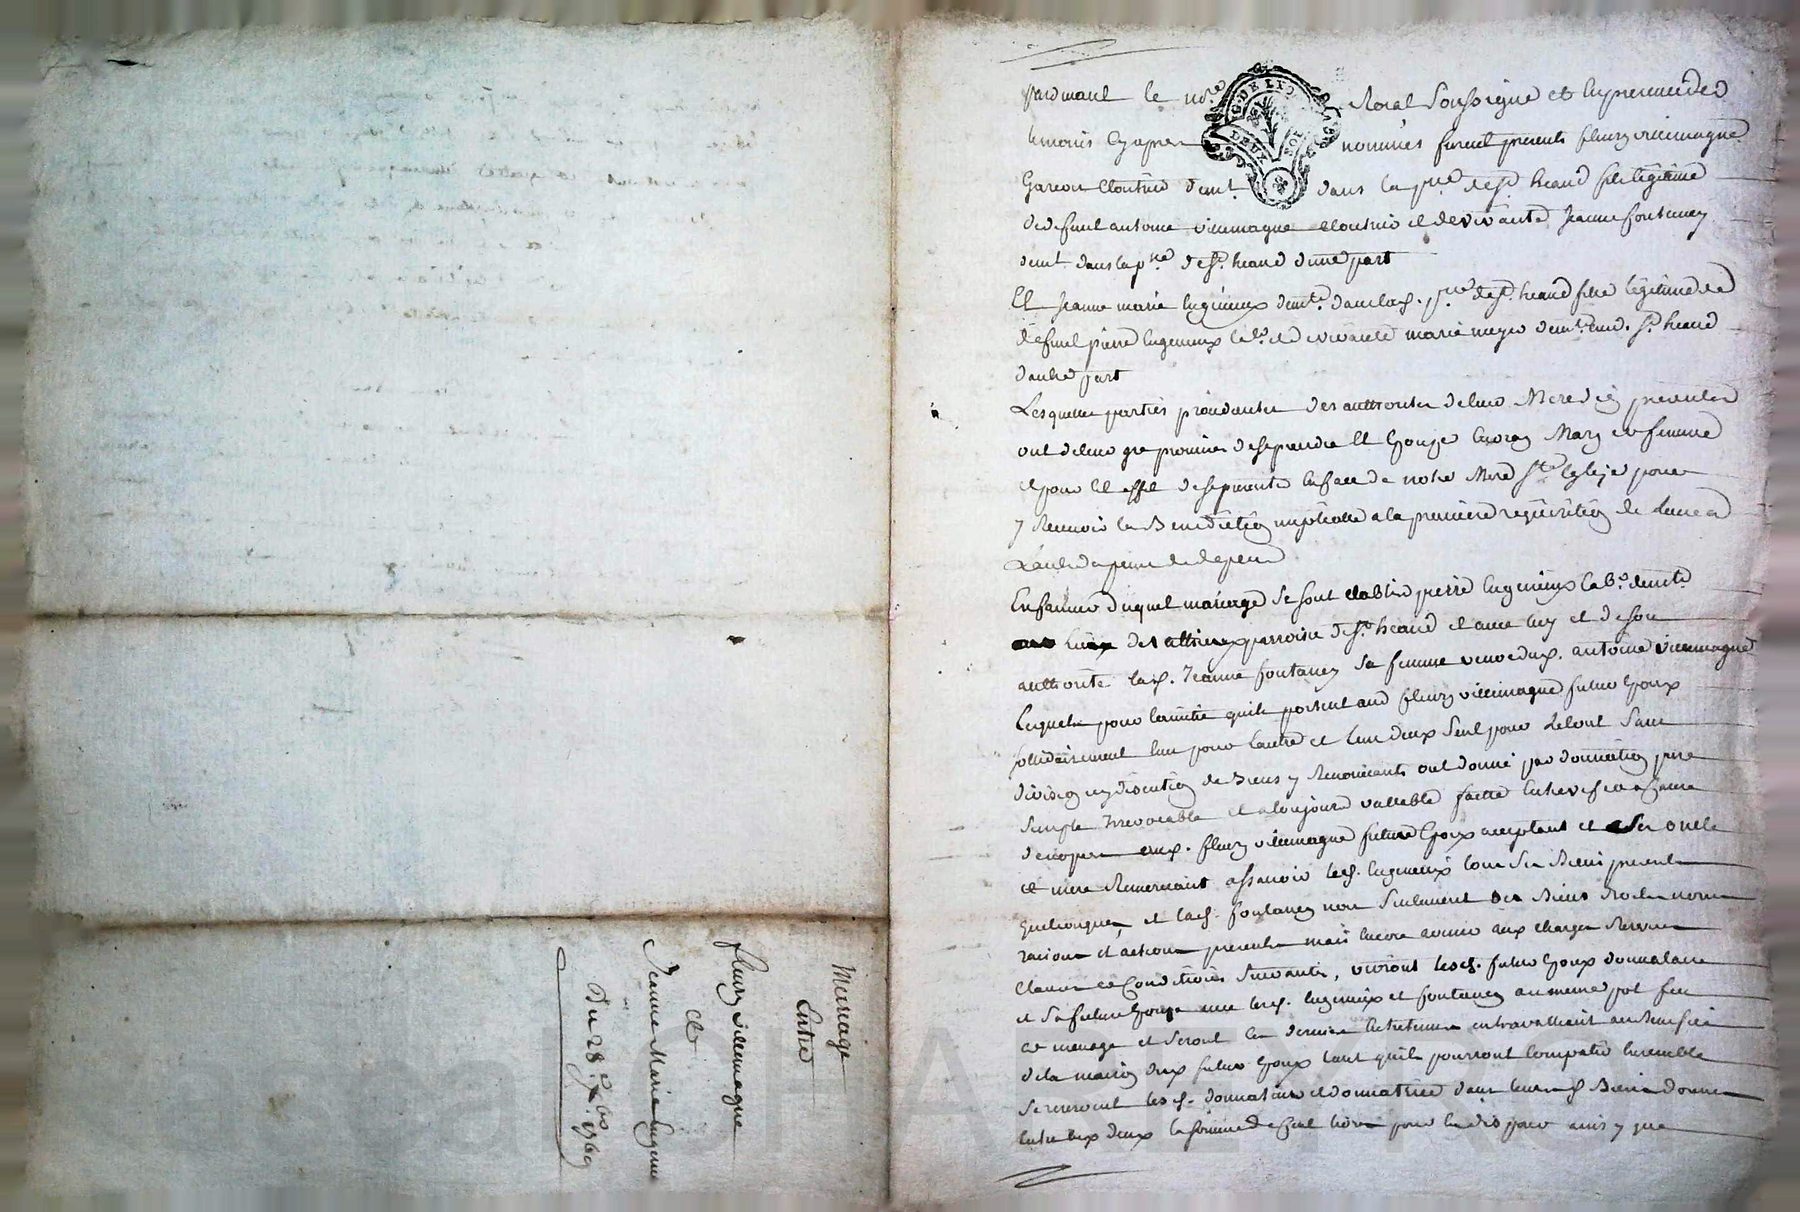 Mariage
Entre
fleury villemagne
et
Jeanne Marie Lugenieux
Du 28e xbre 1769
G. DE LYO
DEUX SOLS
Pardevant le nore Roial Soussigné et En presence des
temoins Cy apres nommés furent presents fleury villemagne
Garcon Cloutrier demt dans la psse de st heand fils legitime
de defunt antoine villemagne Cloutrier et de vivante Jeanne fontaney
demt dans la psse de st heand d'une part
Et Jeanne marie lugenieux demte dans la s. psse de st heand fille legitime de
defunt pierre lugenieux labr et de vivante marie demte aud. st heand
d'autre part
Lesquelles parties procedantes des authorités de leurs Meres icy presentes
ont de leur gré promis de se prendre Et Epouser En vray Mary et femme
et pour Cet effet de se presenter En face de notre Mere ste Eglise pour
y Recevoir la Benediction nuptialle a la premiere requisition de l'une a
L'autre a peine de depens
En faveur duquel mariage se sont etablis pierre lugenieux labr demt
lieu des paroisse de st heand et avec luy et de son
authorité la s. Jeanne fontaney sa femme veuve dud. antoine villemagne
Lesquels pour l'amitié qu'ils portent aud fleury villemagne futur Epoux
sollidairement l'un pour l'autre et l'un deux seul pour Le tout sans
division ny discution de Biens y Renoncants ont donné par donnation pure
simple Irrevocable et a toujours vallable faitte Entre vifs a cause
de nopces aud. fleury villemagne futur Epoux acceptant et ses
et mere Remerciant assavoir led. lugenieux tous ses Biens presents
quelconques, et lad. fontaney non seulement ses Biens Droits noms
raisons et actions presents mais Encore avenir aux charges Reserves
clauses et Conditions suivantes, vivront lesd. futurs Epoux donnataire
et sa future Epouse avec lesd. lugenieux et fontaney au meme pot feu
et menage et seront les derniers Entretenus en travaillant au Benefice
de la maison des futurs Epoux tant qu'ils pourront Compatir Ensemble
se reservent lesd. donnateur et donnatrice dans leursd Biens donnés
Entre Eux deux la somme de Cent livres pour En disposer ainsy que